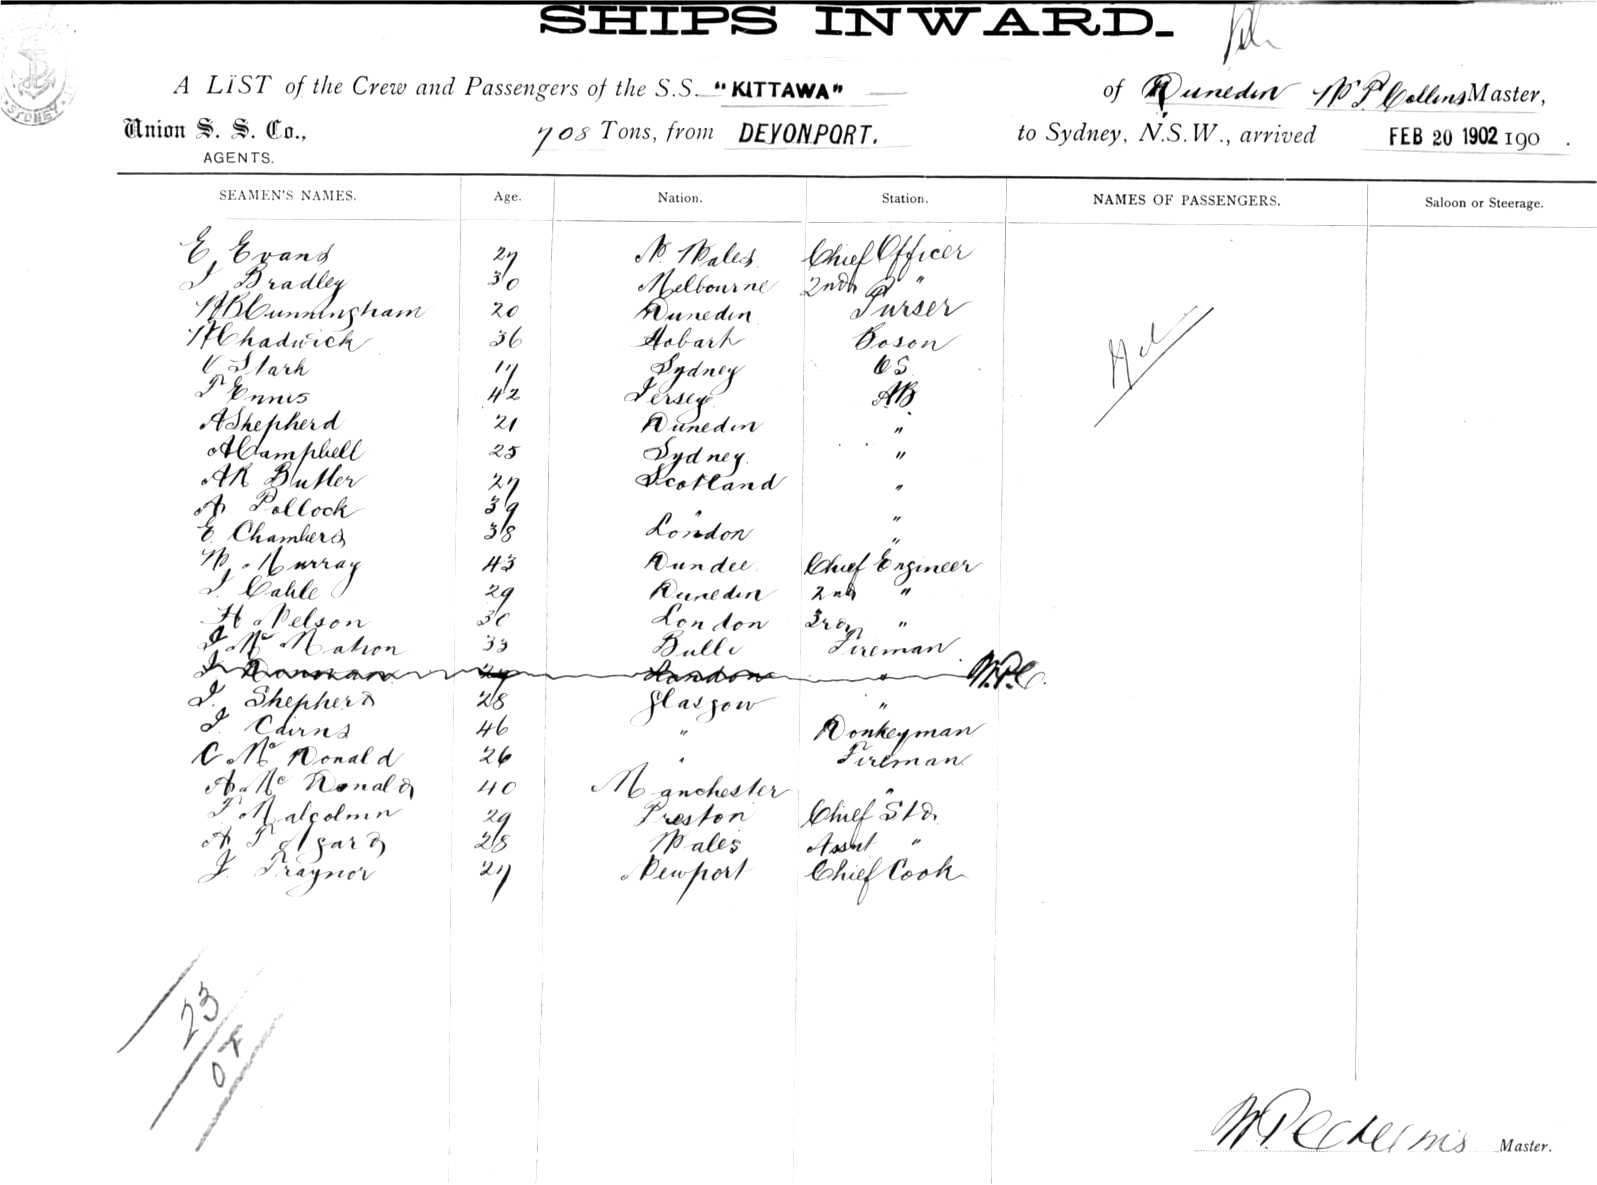 SHIPS INWARD.
A LIST of the Crew and Passengers of the S.S. "KITTAWA" of Dunedin W P Collins Master,
Union S. S. Co., 708 Tons, from DEVONPORT. to Sydney, N.S.W., arrived FEB 20 1902 190 .
AGENTS.
SEAMEN'S NAMES. Age. Nation. Station. NAMES OF PASSENGERS. Saloon or Steerage.
E Evans 27 N. Wales Chief Officer
J Bradley 30 Melbourne 2nd "
W B Cunningham 20 Dunedin Purser
W Chadwick 36 Hobart Boson
C Stark 17 Sydney OS
T Ennis 42 Jersey AB
A Shepherd 21 Dunedin "
A Campbell 25 Sydney "
A R Butler 27 Scotland "
A Pollock 39 " "
E Chambers 38 London "
W. Murray 43 Dundee Chief Engineer
J. Cable 29 Dunedin 2nd "
H Nelson 30 London 3rd "
J Mc Mahon 33 Bulli Fireman
J London " W.P.C.
J. Shepherd 28 Glasgow "
J. Cairns 46 " Donkeyman
C Mc Donald 26 " Fireman
A Mc Donald 40 Manchester "
T Malcolmn 29 Preston Chief Std
A T 28 Wales Assnt "
J. Traynor 27 Newport Chief Cook
Nil
23
W P Collins Master.
SYDNEY